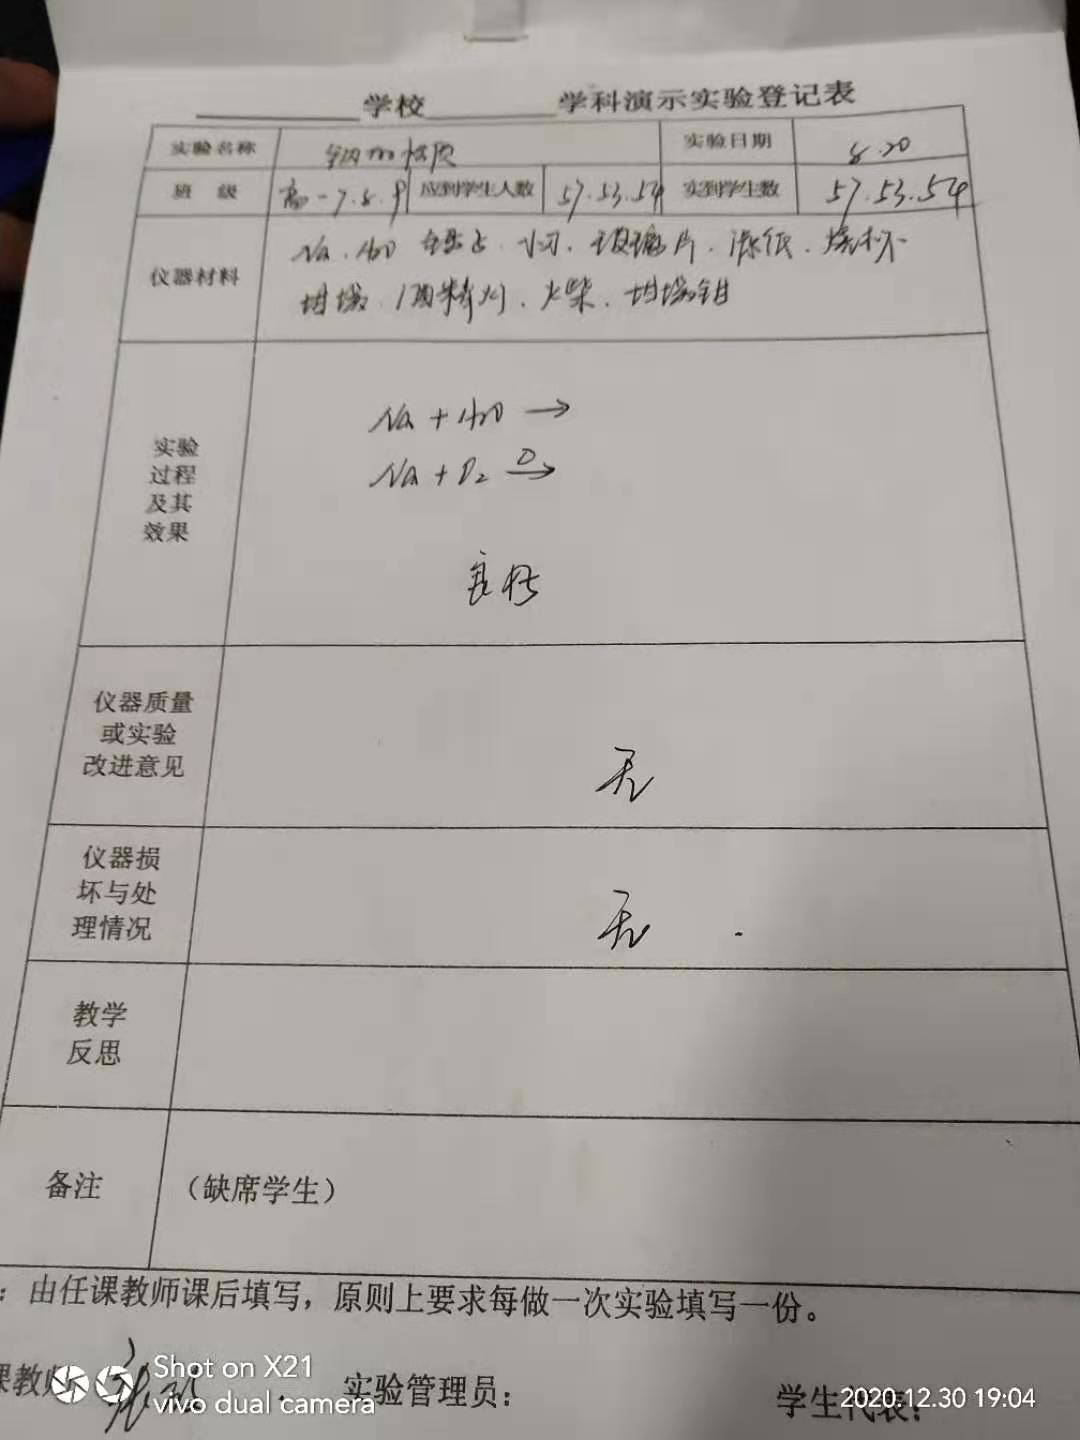 学校 学科演示实验登记表
实验名称 钠的性质 实验日期 8.20
班 级 高一7.8.9 应到学生人数 57.53.54 实到学生数 57.53.54
仪器材料 Na、H2O 镊子、小刀、玻璃片、滤纸、烧杯
坩埚、酒精灯、火柴、坩埚钳
实验
过程
及其
效果
Na + H2O →
Na + O2 △→
良好
仪器质量
或实验
改进意见
无
仪器损
坏与处
理情况
无
教学
反思
备注 (缺席学生)
:由任课教师课后填写,原则上要求每做一次实验填写一份。
课教师 实验管理员: 学生代表:
Shot on X21
vivo dual camera
2020.12.30 19:04